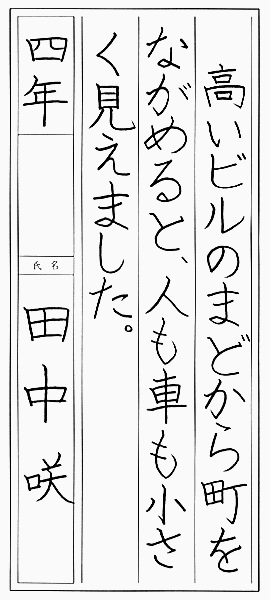 高いビルのまどから町を
ながめると、人も車も小さ
く見えました。
四年
氏名
田中咲